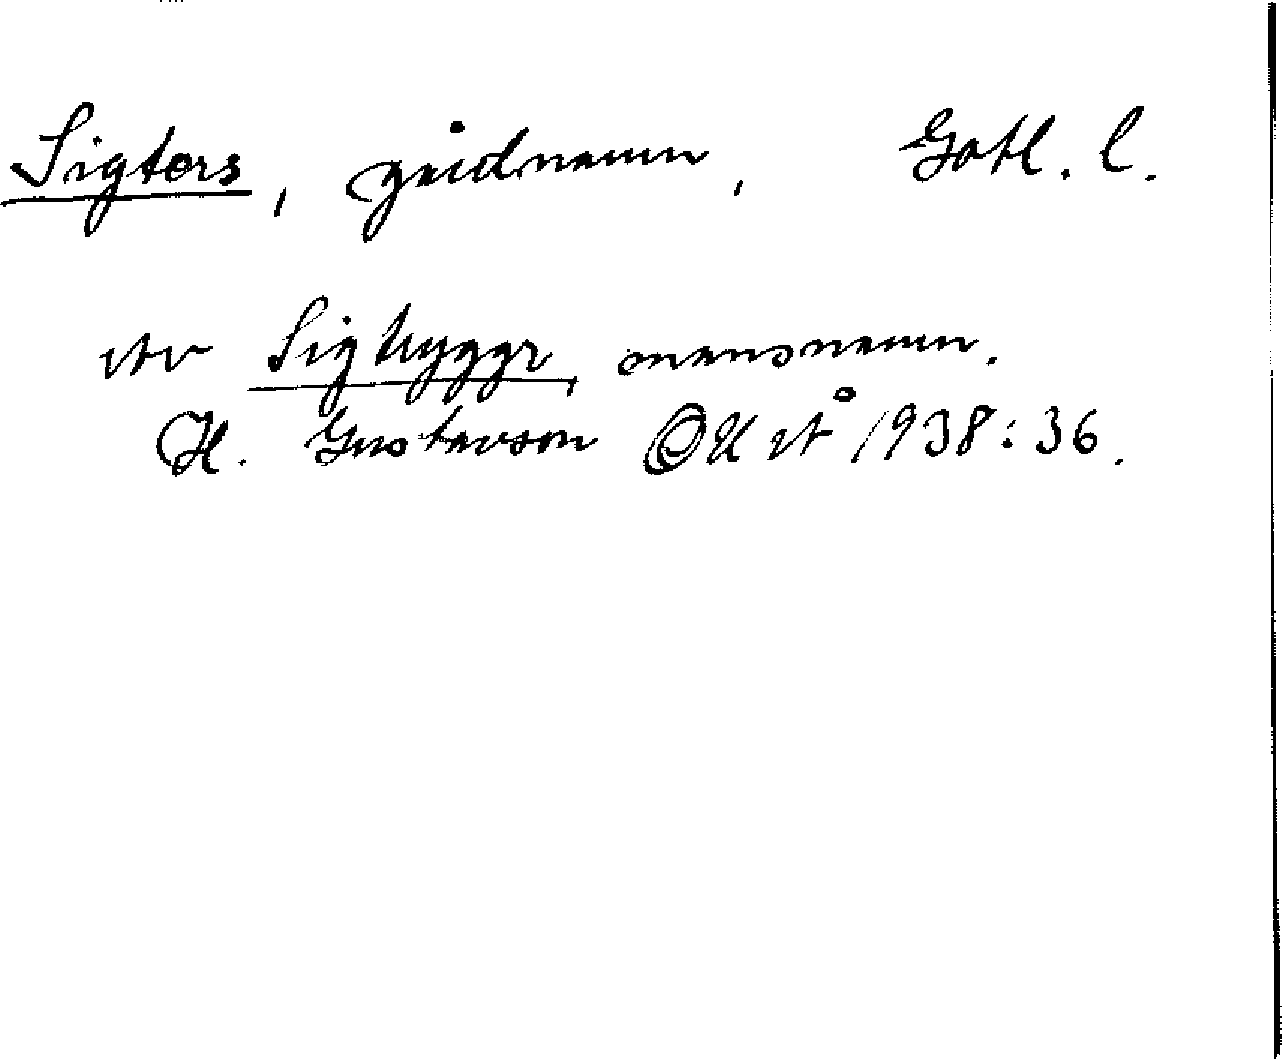 Sigters, gårdnamn, Gotl. l.
av Sigtryggr, mansnamn.
H. Gustavson GUÅ 1938:36.